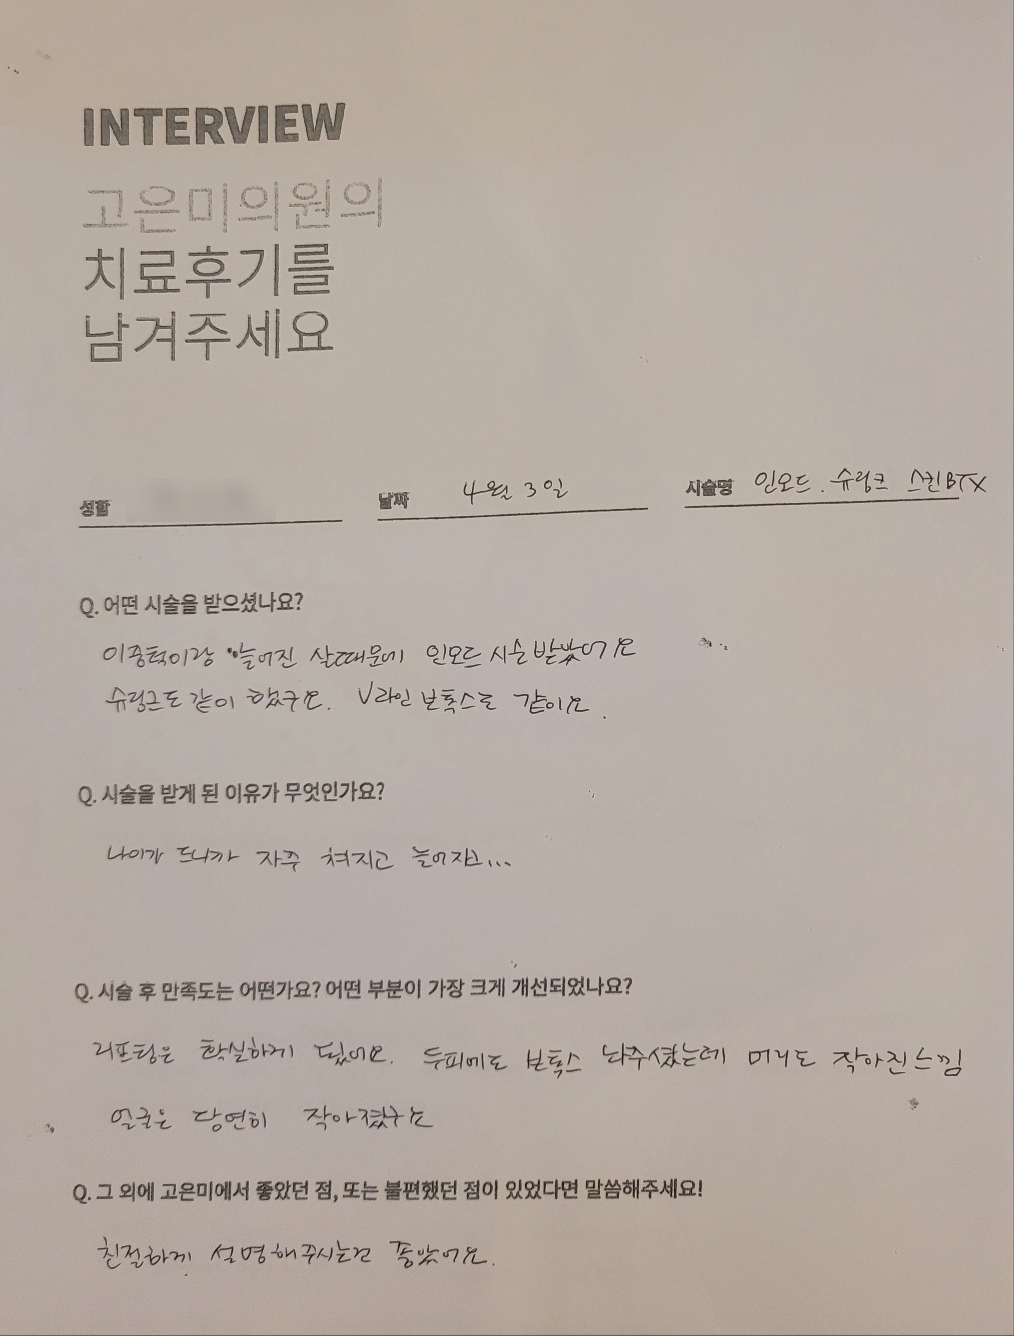 INTERVIEW
고은미의원의
치료후기를
남겨주세요
성함 날짜 4월 3일 시술명 인모드. 슈링크 스킨BTX
Q. 어떤 시술을 받으셨나요?
이중턱이랑 늘어진 살때문에 인모드 시술받았어요
슈링크도 같이 했구요. V라인 보톡스도 같이요.
Q. 시술을 받게 된 이유가 무엇인가요?
나이가 드니까 자꾸 쳐지고 늘어지고...
Q. 시술 후 만족도는 어떤가요? 어떤 부분이 가장 크게 개선되었나요?
리프팅은 확실하게 됐어요. 두피에도 보톡스 놔주셨는데 머리도 작아진느낌
얼굴은 당연히 작아졌구요
Q. 그 외에 고은미에서 좋았던 점, 또는 불편했던 점이 있었다면 말씀해주세요!
친절하게 설명해주시는건 좋았어요.